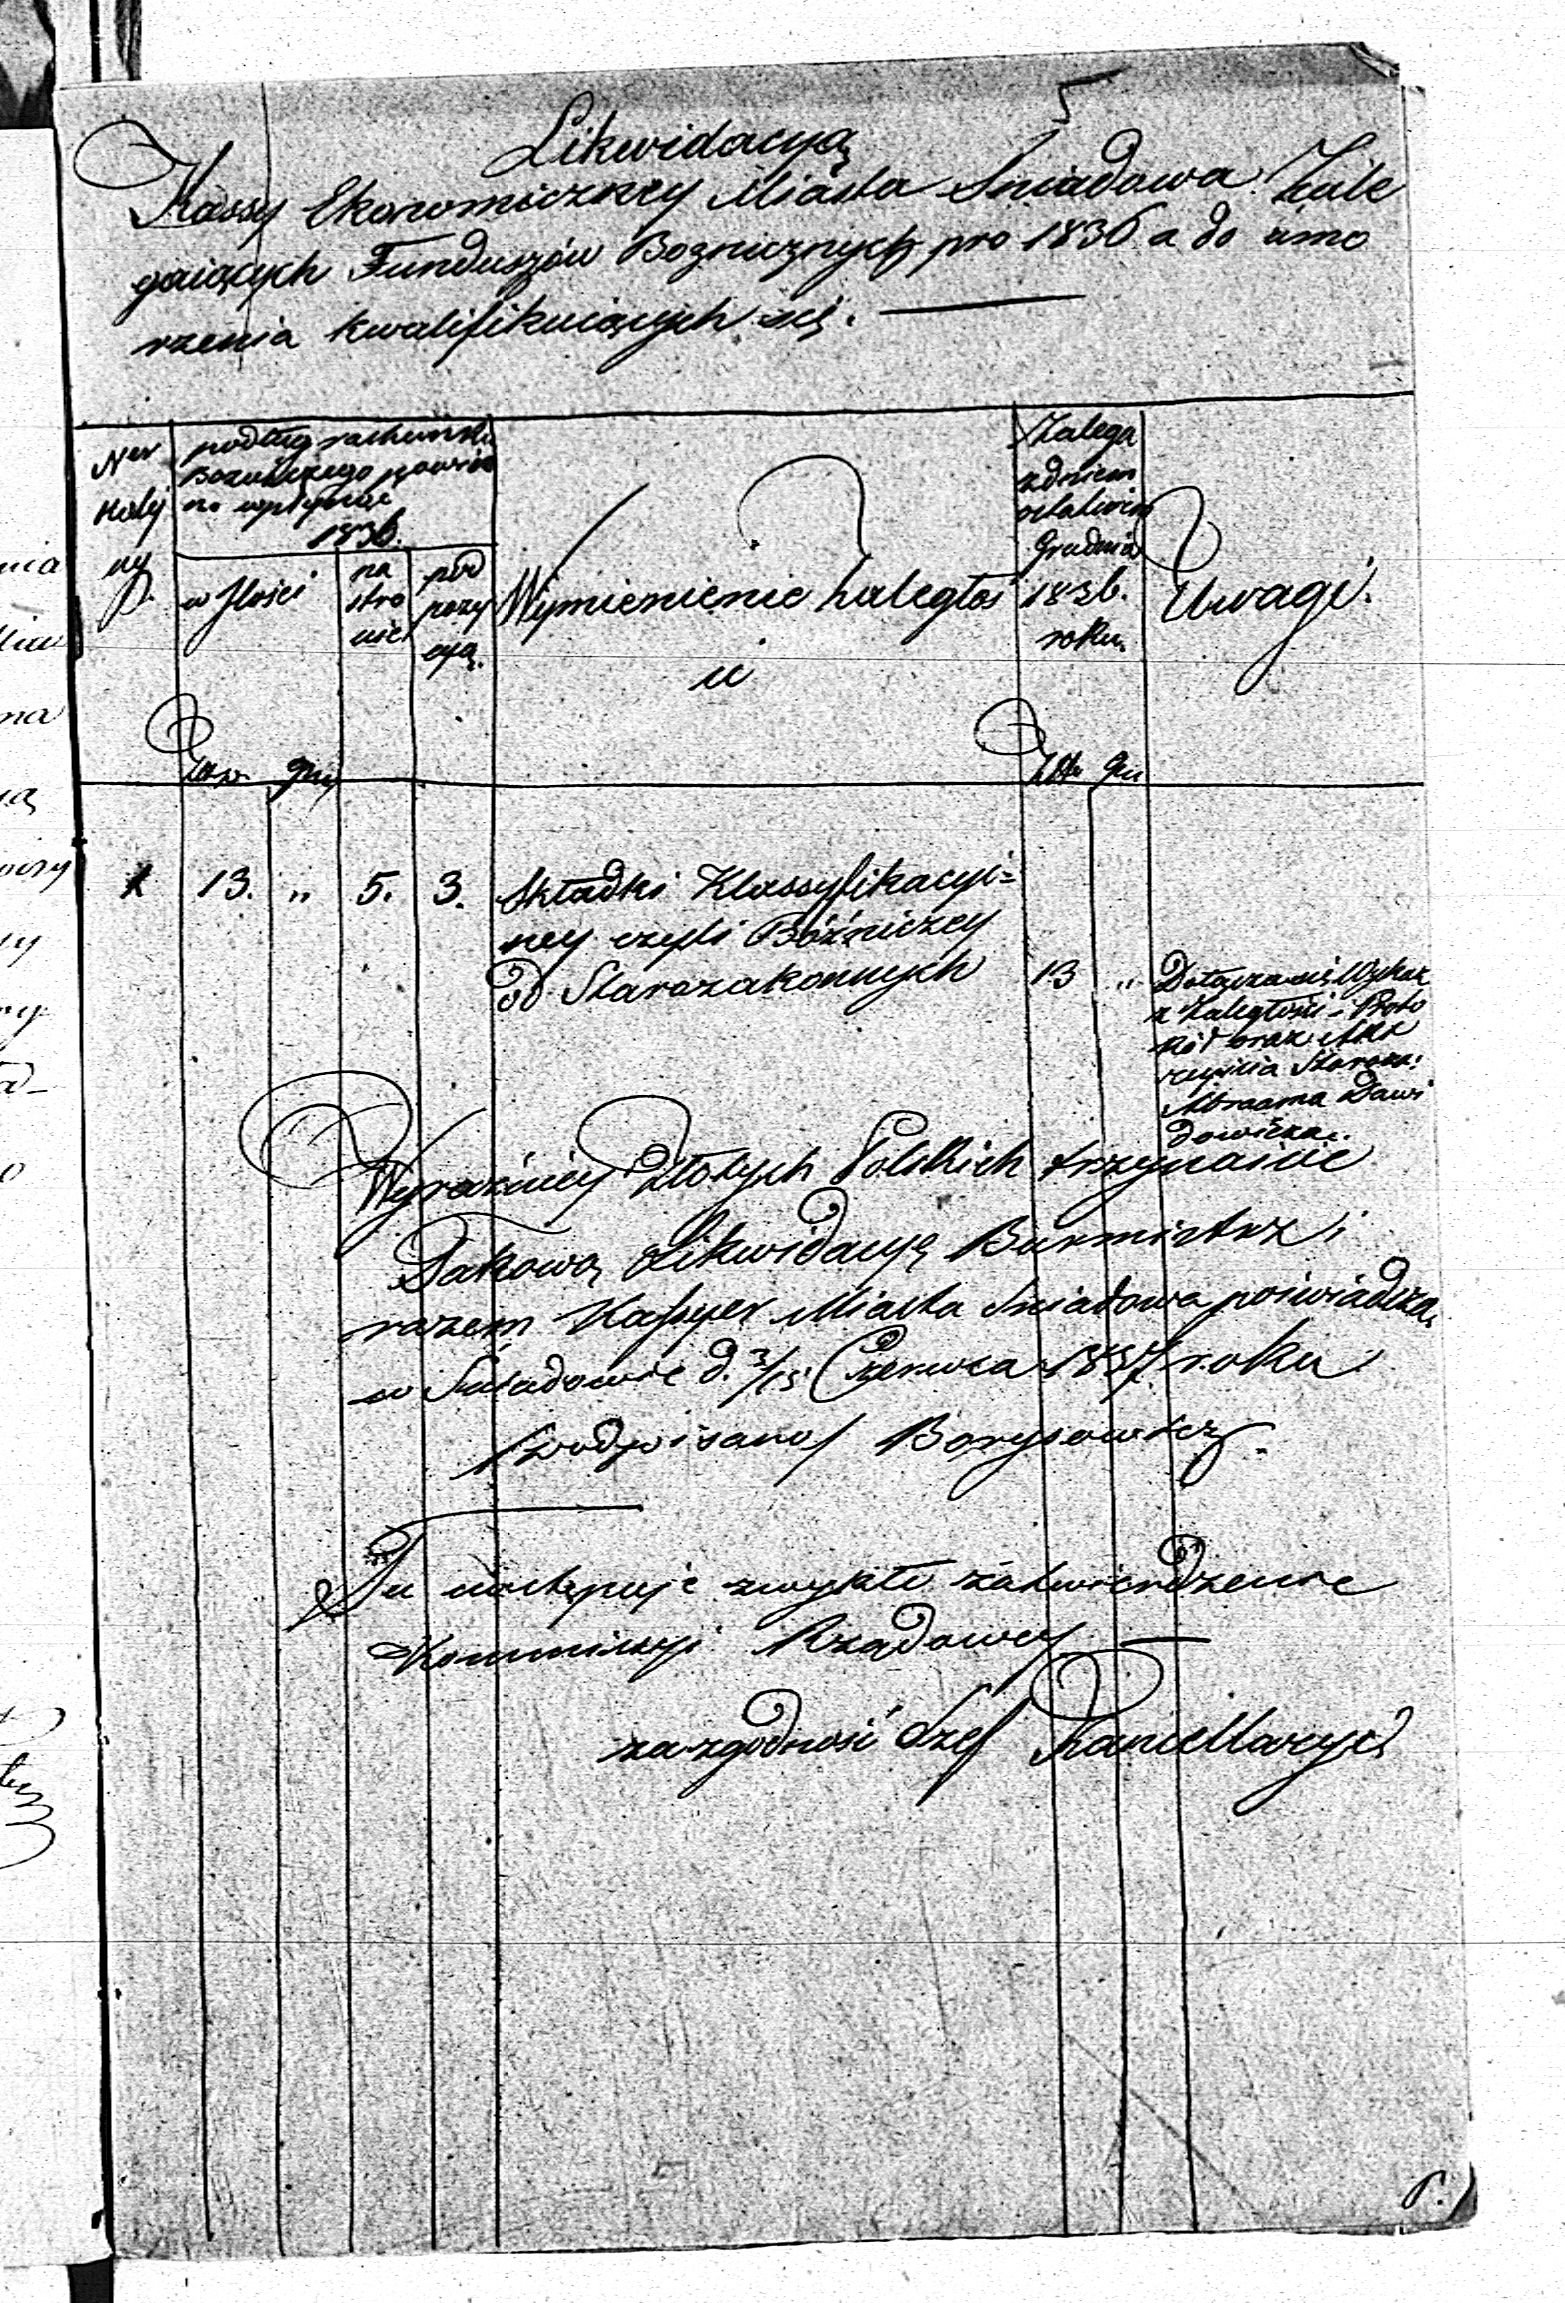 5
Likwidacyą
Kassy Ekonomiczney Miasta Sniadowa Zale
gaiących Funduszów Boznicznych pro 1836 a do umo
rzenia kwalifikuiących się.
Ner
Koley
ny.
podług rachunku
Bożniczego powin
no wpłynąć
1836.
w Ilości
na
stro
nie
pod
pozy
cyą.
Wymienienie Zaległoś
ci
Zalega
z dniem
ostatnim
Grudnia
1836.
roku.
Uwagi.
Złp. gr.
Złp. gr.
1 13. „ 5. 3. Składki Klassyfikacyi=
ney czyli Bóżniczey
od Starozakonnych 13 „
Dołącza się Wykaz
z Zaległości i Proto
kół oraz Akt
zejścia Staroza:
Abraama Dawi
dowicza.
Wyraźniey Złotych Polskich trzynaście
Takową Likwidacyę Burmistrz i
razem Kassyer Miasta Sniadowa poświadcza,
w Sniadowie d. 3/15 Czerwca 1837 roku
/podpisano/ Borysowicz.
Tu następuje zwykłe zatwierdzenie
Kommissyi Rządowey
za zgodność Szef Kancellaryi